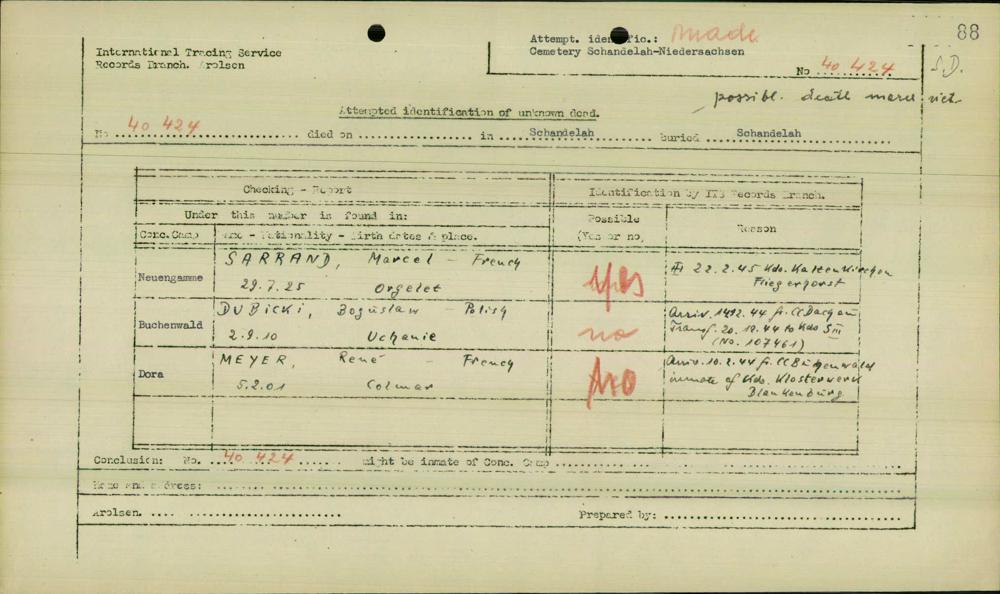 88
Attempt. identific.: Made
International Tracing Service
Cemetery Schandelah-Niedersachsen
Records Branch. Arolsen
No 40 424
S.D.
possibl. death march vict.
Attempted identification of unknown dead.
No 40 424 died on in Schandelah buried Schandelah
Checking - Report
Identification by ITS Records Branch.
Under this number is found in:
Possible
(Yes or no)
Reason
Conc.Camp
Name - Nationality - Birth dates & place.
Neuengamme
SARRAND, Marcel - French
29.7.25 Orgelet
yes
22.2.45 Kdo. Kaltenkirchen
Fliegerhorst
Buchenwald
DUBICKI, Boguslaw - Polish
2.9.10 Uchanie
no
Arriv. 14.12.44 fr. CC Dachau
Transf. 20.12.44 to Kdo S III
(No. 107461)
Dora
MEYER, René - French
5.2.01 Colmar
No
Arriv. 10.2.44 fr. CC Buchenwald
inmate of Kdo. Klosterwerk
Blankenburg
Conclusion: No. 40 424 might be inmate of Conc. Camp
Name and address:
Arolsen.
Prepared by: